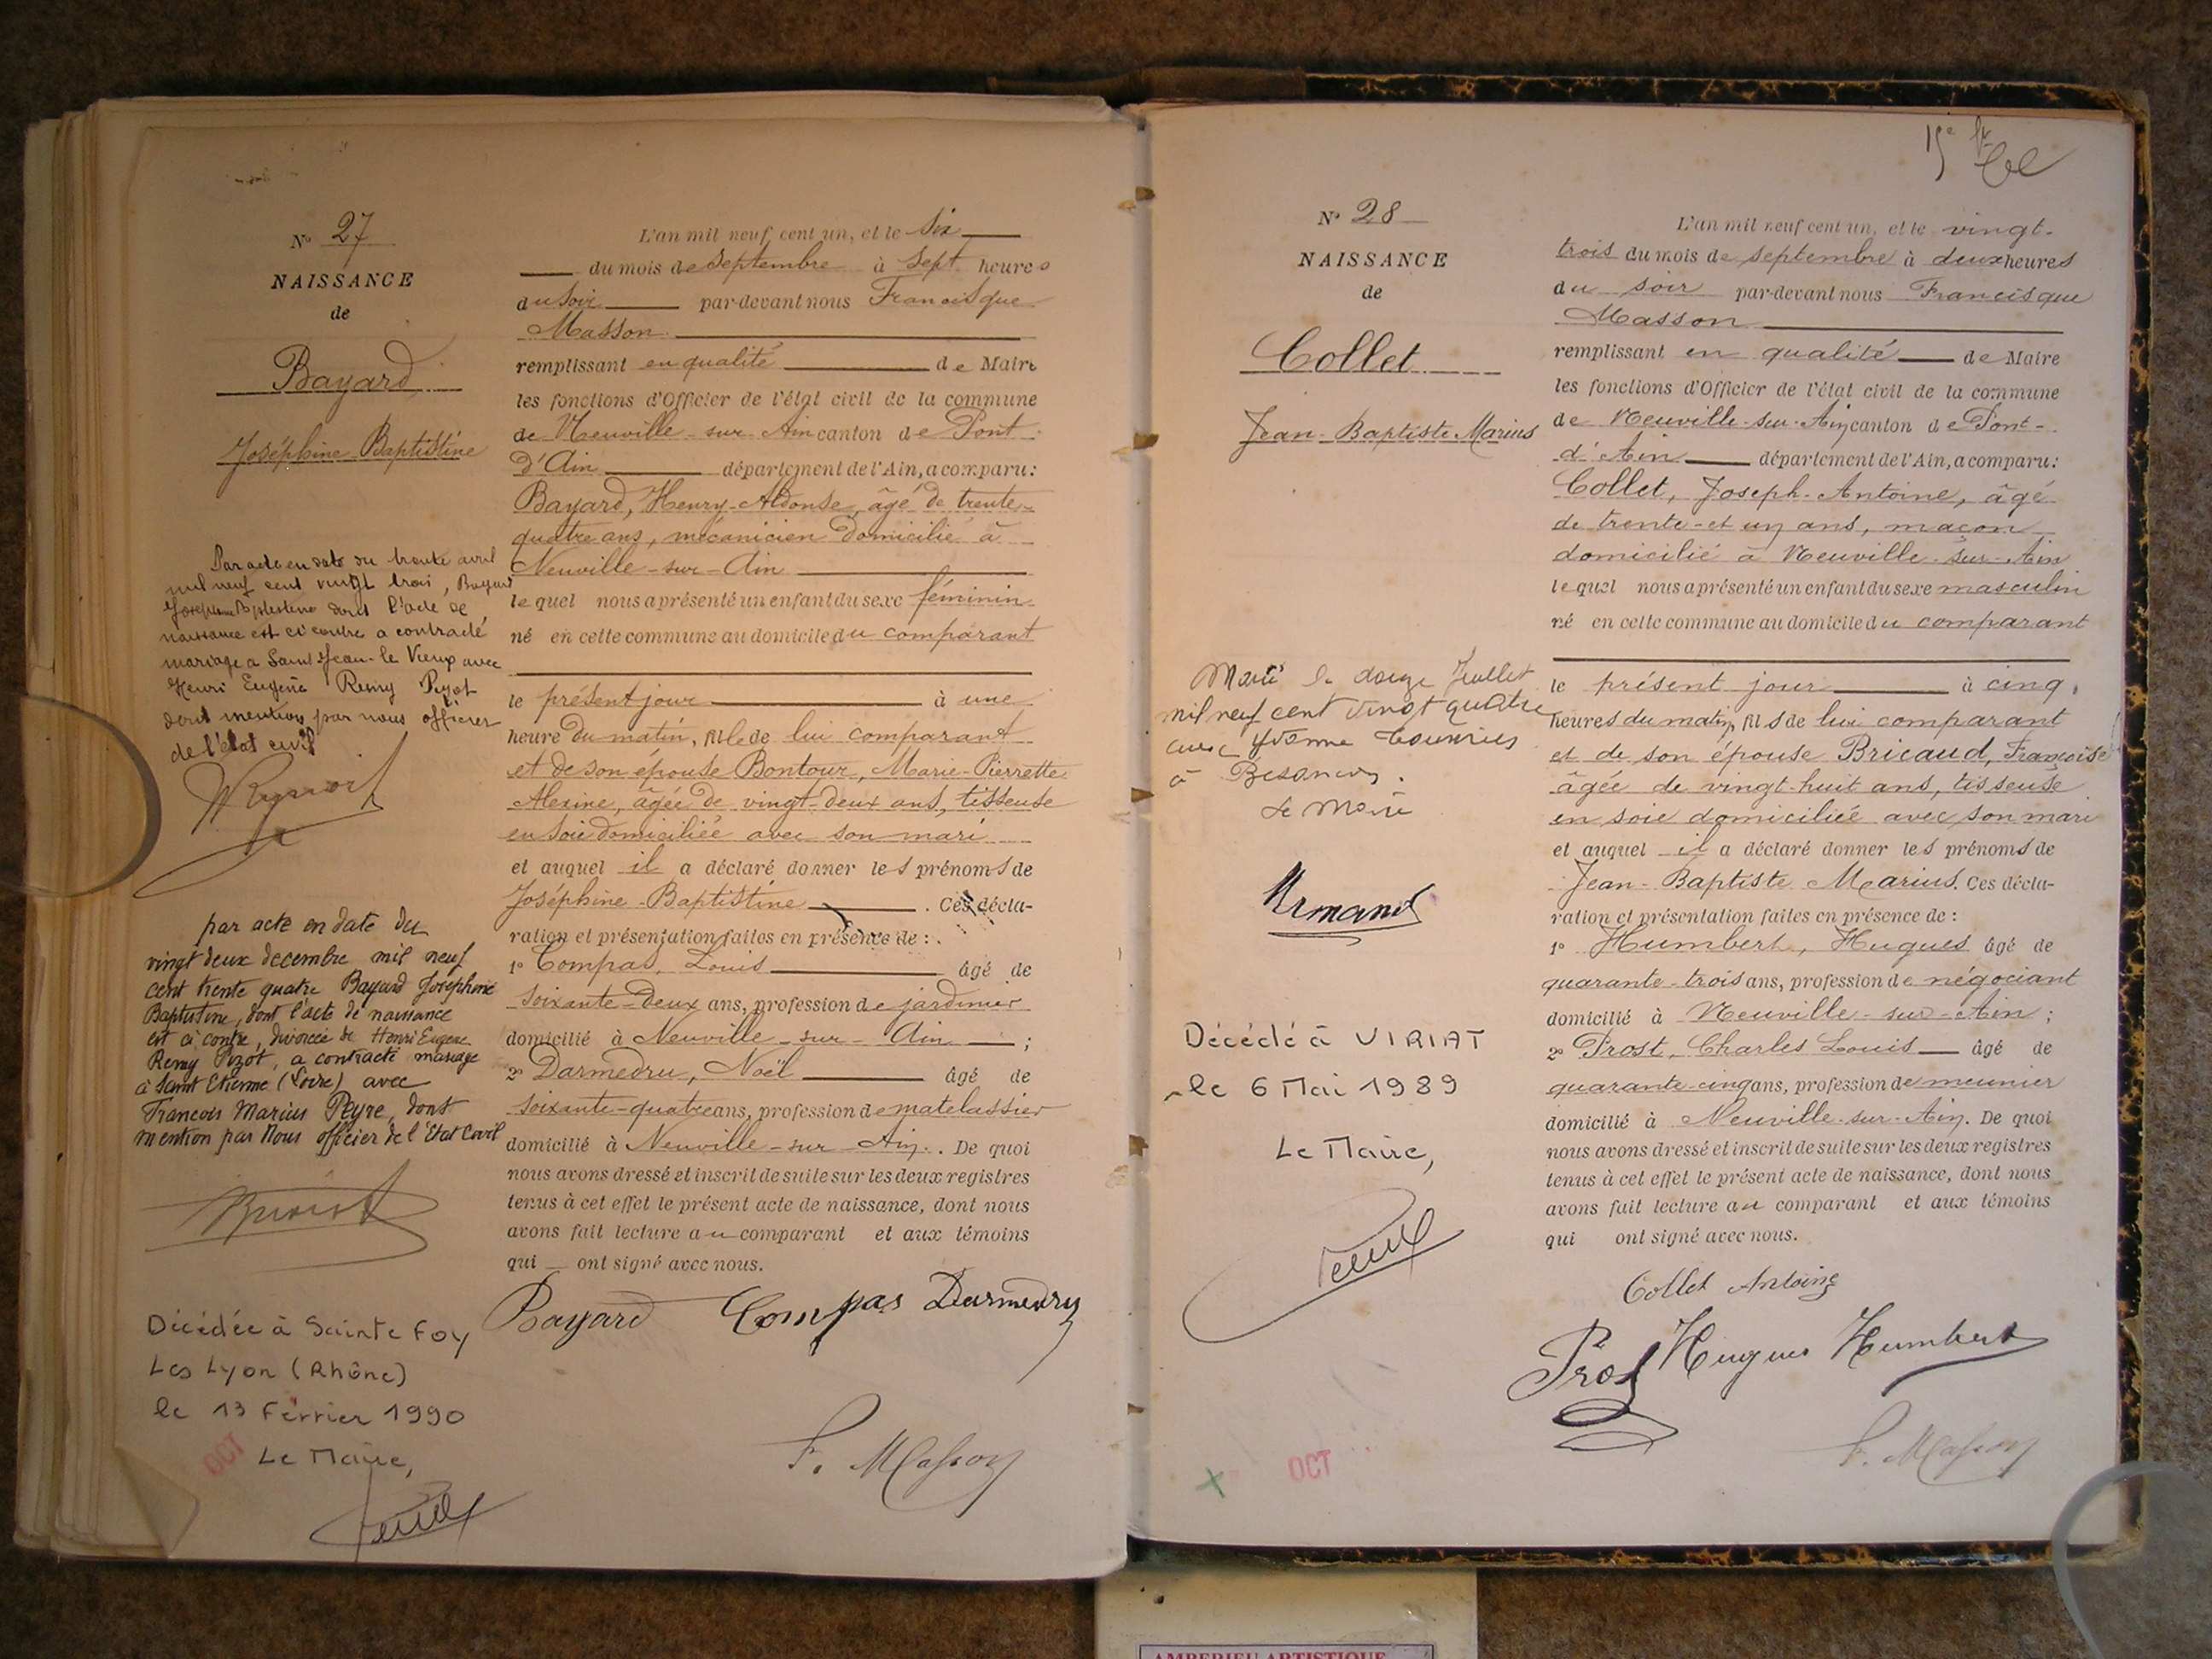 N° 27
NAISSANCE
de
Bayard
Joséphine Baptistine
Par acte en date du trente avril
mil neuf cent vingt trois, Bayard
Joséphine Baptistine dont l'acte de
naissance est ci contre a contracté
mariage a Saint Jean-le Vieux avec
Henri Eugène Remy Pizot
dont mention par nous officier
de l'état civil
par acte en date du
vingt deux decembre mil neuf
cent trente quatre Bayard Joséphine
Baptistine, dont l'acte de naissance
est ci contre, divorcée de Henri Eugene
Remy Pizot, a contracté mariage
à Saint Etienne (Loire) avec
Francois Marius Peyre, dont
mention par Nous officier de l'Etat Civil
Décédée à Sainte Foy
Les Lyon (Rhône)
le 13 Février 1990
OCT
Le Maire,
L'an mil neuf cent un, et le six
du mois de septembre à sept heures
du soir par-devant nous Francisque
Masson
remplissant en qualité de Maire
les fonctions d'Officier de l'état civil de la commune
de Neuville-sur-Ain canton de Pont
d'Ain département de l'Ain, a comparu:
Bayard, Henry-Aldonse, âgé de trente-
quatre ans, mécanicien domicilié à
Neuville-sur-Ain
le quel nous a présenté un enfant du sexe féminin
né en cette commune au domicile du comparant
le présent jour à une
heure du matin, fille de lui comparant
et de son épouse Bontour, Marie-Pierrette
Alexine, âgée de vingt-deux ans, tisseuse
en soie domiciliée avec son mari
et auquel il a déclaré donner les prénoms de
Joséphine-Baptistine. Ces décla-
ration et présentation faites en présence de:
1° Compas, Louis âgé de
soixante-deux ans, profession de jardinier
domicilié à Neuville-sur-Ain;
2° Darmedru, Noël âgé de
soixante-quatre ans, profession de matelassier
domicilié à Neuville-sur-Ain. De quoi
nous avons dressé et inscrit de suite sur les deux registres
tenus à cet effet le présent acte de naissance, dont nous
avons fait lecture au comparant et aux témoins
qui ont signé avec nous.
Bayard Compas Darmedru
F. Masson
N° 28
NAISSANCE
de
Collet
Jean-Baptiste Marius
Marié le douze Juillet
mil neuf cent vingt quatre
avec Yvonne
à Besançon.
Le Maire
Armand
Décédé à VIRIAT
le 6 Mai 1989
Le Maire,
OCT
L'an mil neuf cent un, et le vingt-
trois du mois de septembre à deux heures
du soir par-devant nous Francisque
Masson
remplissant en qualité de Maire
les fonctions d'Officier de l'état civil de la commune
de Neuville-sur-Ain canton de Pont-
d'Ain département de l'Ain, a comparu:
Collet, Joseph-Antoine, âgé
de trente-et un ans, maçon
domicilié à Neuville-sur-Ain
lequel nous a présenté un enfant du sexe masculin
né en cette commune au domicile du comparant
le présent jour à cinq
heures du matin, fils de lui comparant
et de son épouse Bricaud, Françoise
âgée de vingt-huit ans, tisseuse
en soie domiciliée avec son mari
et auquel il a déclaré donner les prénoms de
Jean-Baptiste Marius. Ces décla-
ration et présentation faites en présence de:
1° Humbert, Hugues âgé de
quarante-trois ans, profession de négociant
domicilié à Neuville-sur-Ain;
2° Prost, Charles Louis âgé de
quarante-cinq ans, profession de meunier
domicilié à Neuville-sur-Ain. De quoi
nous avons dressé et inscrit de suite sur les deux registres
tenus à cet effet le présent acte de naissance, dont nous
avons fait lecture au comparant et aux témoins
qui ont signé avec nous.
Collet Antoine
Prost Hugues Humbert
F. Masson
AMBERIEU ARTISTIQUE